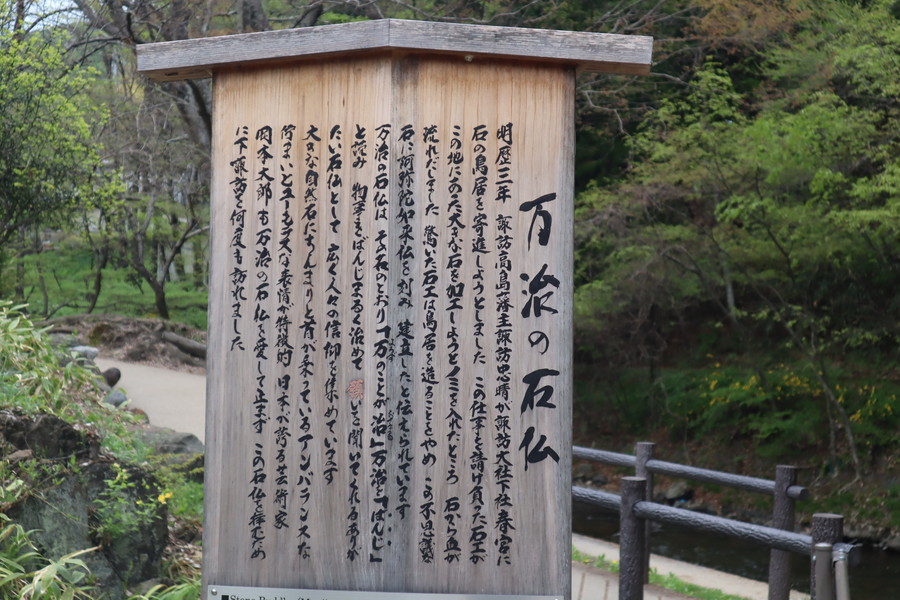 万治の石仏
明暦三年 諏訪高島藩主諏訪忠晴が諏訪大社下社春宮に
石の鳥居を寄進しようとしました この仕事を請け負った石工が
この地にあった大きな石を加工しようとノミを入れたところ 石から血が
流れだしました 驚いた石工は鳥居を造ることをやめ この不思議な
石に阿弥陀如来仏を刻み 建立したと伝えられています
万治の石仏は その名のとおり「万のことが治」万治と「ばんじ」
と読み 物事をばんじまるく治めて いさ聞いてくれるありが
たい石仏として 広く人々の信仰を集めています
大きな自然石にちんまりと首が乗っているアンバランスな
佇まいとユーモラスな表情が特徴的 日本が誇る芸術家
岡本太郎も万治の石仏を愛して止まず この石仏を拝むため
に下諏訪を何度も訪れました